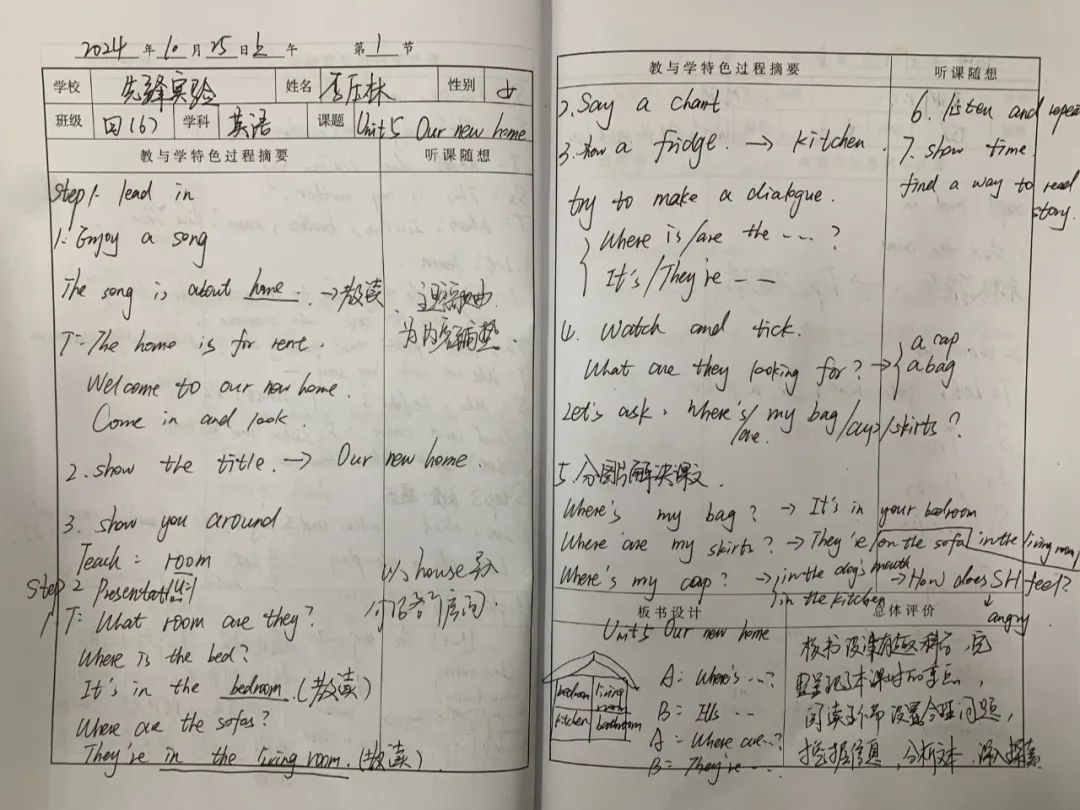 2024 年 10 月 25 日 上 午 第 1 节
学校 先锋实验 姓名 李乐林 性别 女
班级 四(6) 学科 英语 课题 Unit 5 Our new home
教与学特色过程摘要 听课随想
Step 1. lead in
1. Enjoy a song
The song is about home. → 教读. 主题歌曲
为内容铺垫.
T: The home is for rent.
Welcome to our new home.
Come in and look.
2. show the title. → Our new home.
3. show you around
Teach: room
Step 2 Presentation
以 house 导入
介绍各个房间.
1. T: What room are they?
Where is the bed?
It's in the bedroom. (教读)
Where are the sofas?
They're in the living room. (教读)
教与学特色过程摘要 听课随想
2. Say a chart
3. show a fridge. → kitchen.
try to make a dialogue.
Where is/are the ----?
It's/They're ---
4. Watch and tick.
What are they looking for? → a cap.
a bag
Let's ask: Where's/are my bag/cap/skirts?
5. 分图片解决课文.
Where's my bag? → It's in your bedroom
Where are my skirts? → They're/on the sofa/in the living room/
Where's my cap? → in the dog's mouth → How does SH feel?
in the kitchen ↓ angry
6. listen and repeat
7. show time.
find a way to read
story.
板书设计 总体评价
Unit 5 Our new home
bedroom living room
kitchen bathroom
A: Where's ...?
B: It's ...
A: Where are...?
B: They're ....
板书设计有趣科学, 完
整呈现了本课时的重点,
阅读环节设置合理问题,
挖掘信息, 分析文本. 深入探索